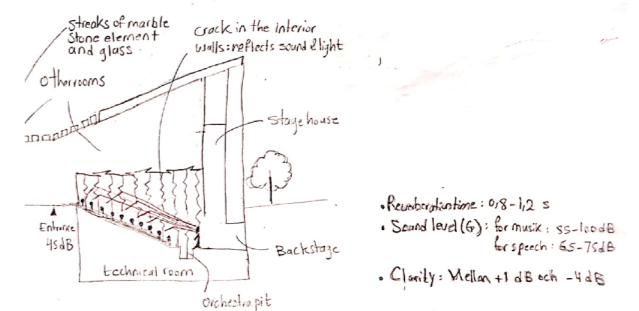 streaks of marble
stone element
and glass.
crack in the interior
walls: reflects sound & light
other rooms
Stage house
Entrance
45dB
Backstage
technical room
Orchestra pit
• Reverberation time: 0,8-1,2 s
• Sound level (G): for musik: 85-100dB
for speech: 65-75dB
• Clarity: Mellan +1 dB och -4dB